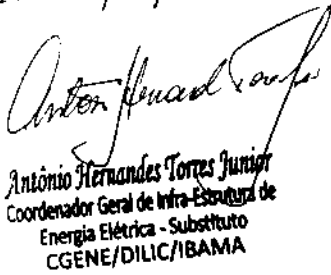 Antônio Hernandes Torres Junior
Coordenador Geral de Infra-Estrutura de
Energia Elétrica - Substituto
CGENE/DILIC/IBAMA